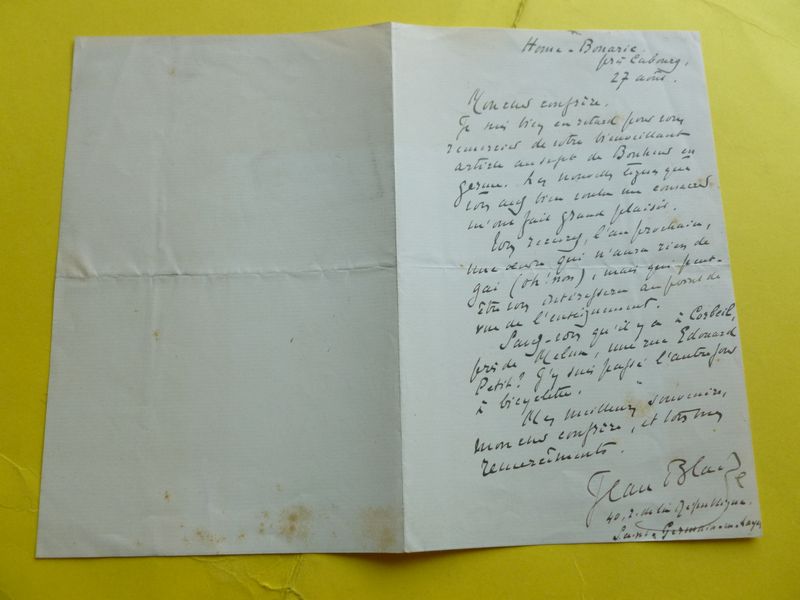 Home-Bonarie.
près Cabourg,
27 août.
Mon cher confrère.
Je suis bien en retard pour vous
remercier de votre bienveillant
article au sujet de Bonheur en
germe. Les nouvelles lignes que
vous avez bien voulu me consacrer
m'ont fait grand plaisir.
Vous recevrez, l'an prochain,
une œuvre qui n'aura rien de
gai (oh! non), mais qui peut-
être vous intéressera au point de
vue de l'enseignement.
Savez-vous qu'il y a à Corbeil,
près de Melun, une rue Edouard
Petit? J'y suis passé l'autre jour
à bicyclette.
Mes meilleurs souvenirs,
mon cher confrère, et tous mes
remerciments.
Jean Blaize
40, r. de la République.
Saint-Germain-en-Laye